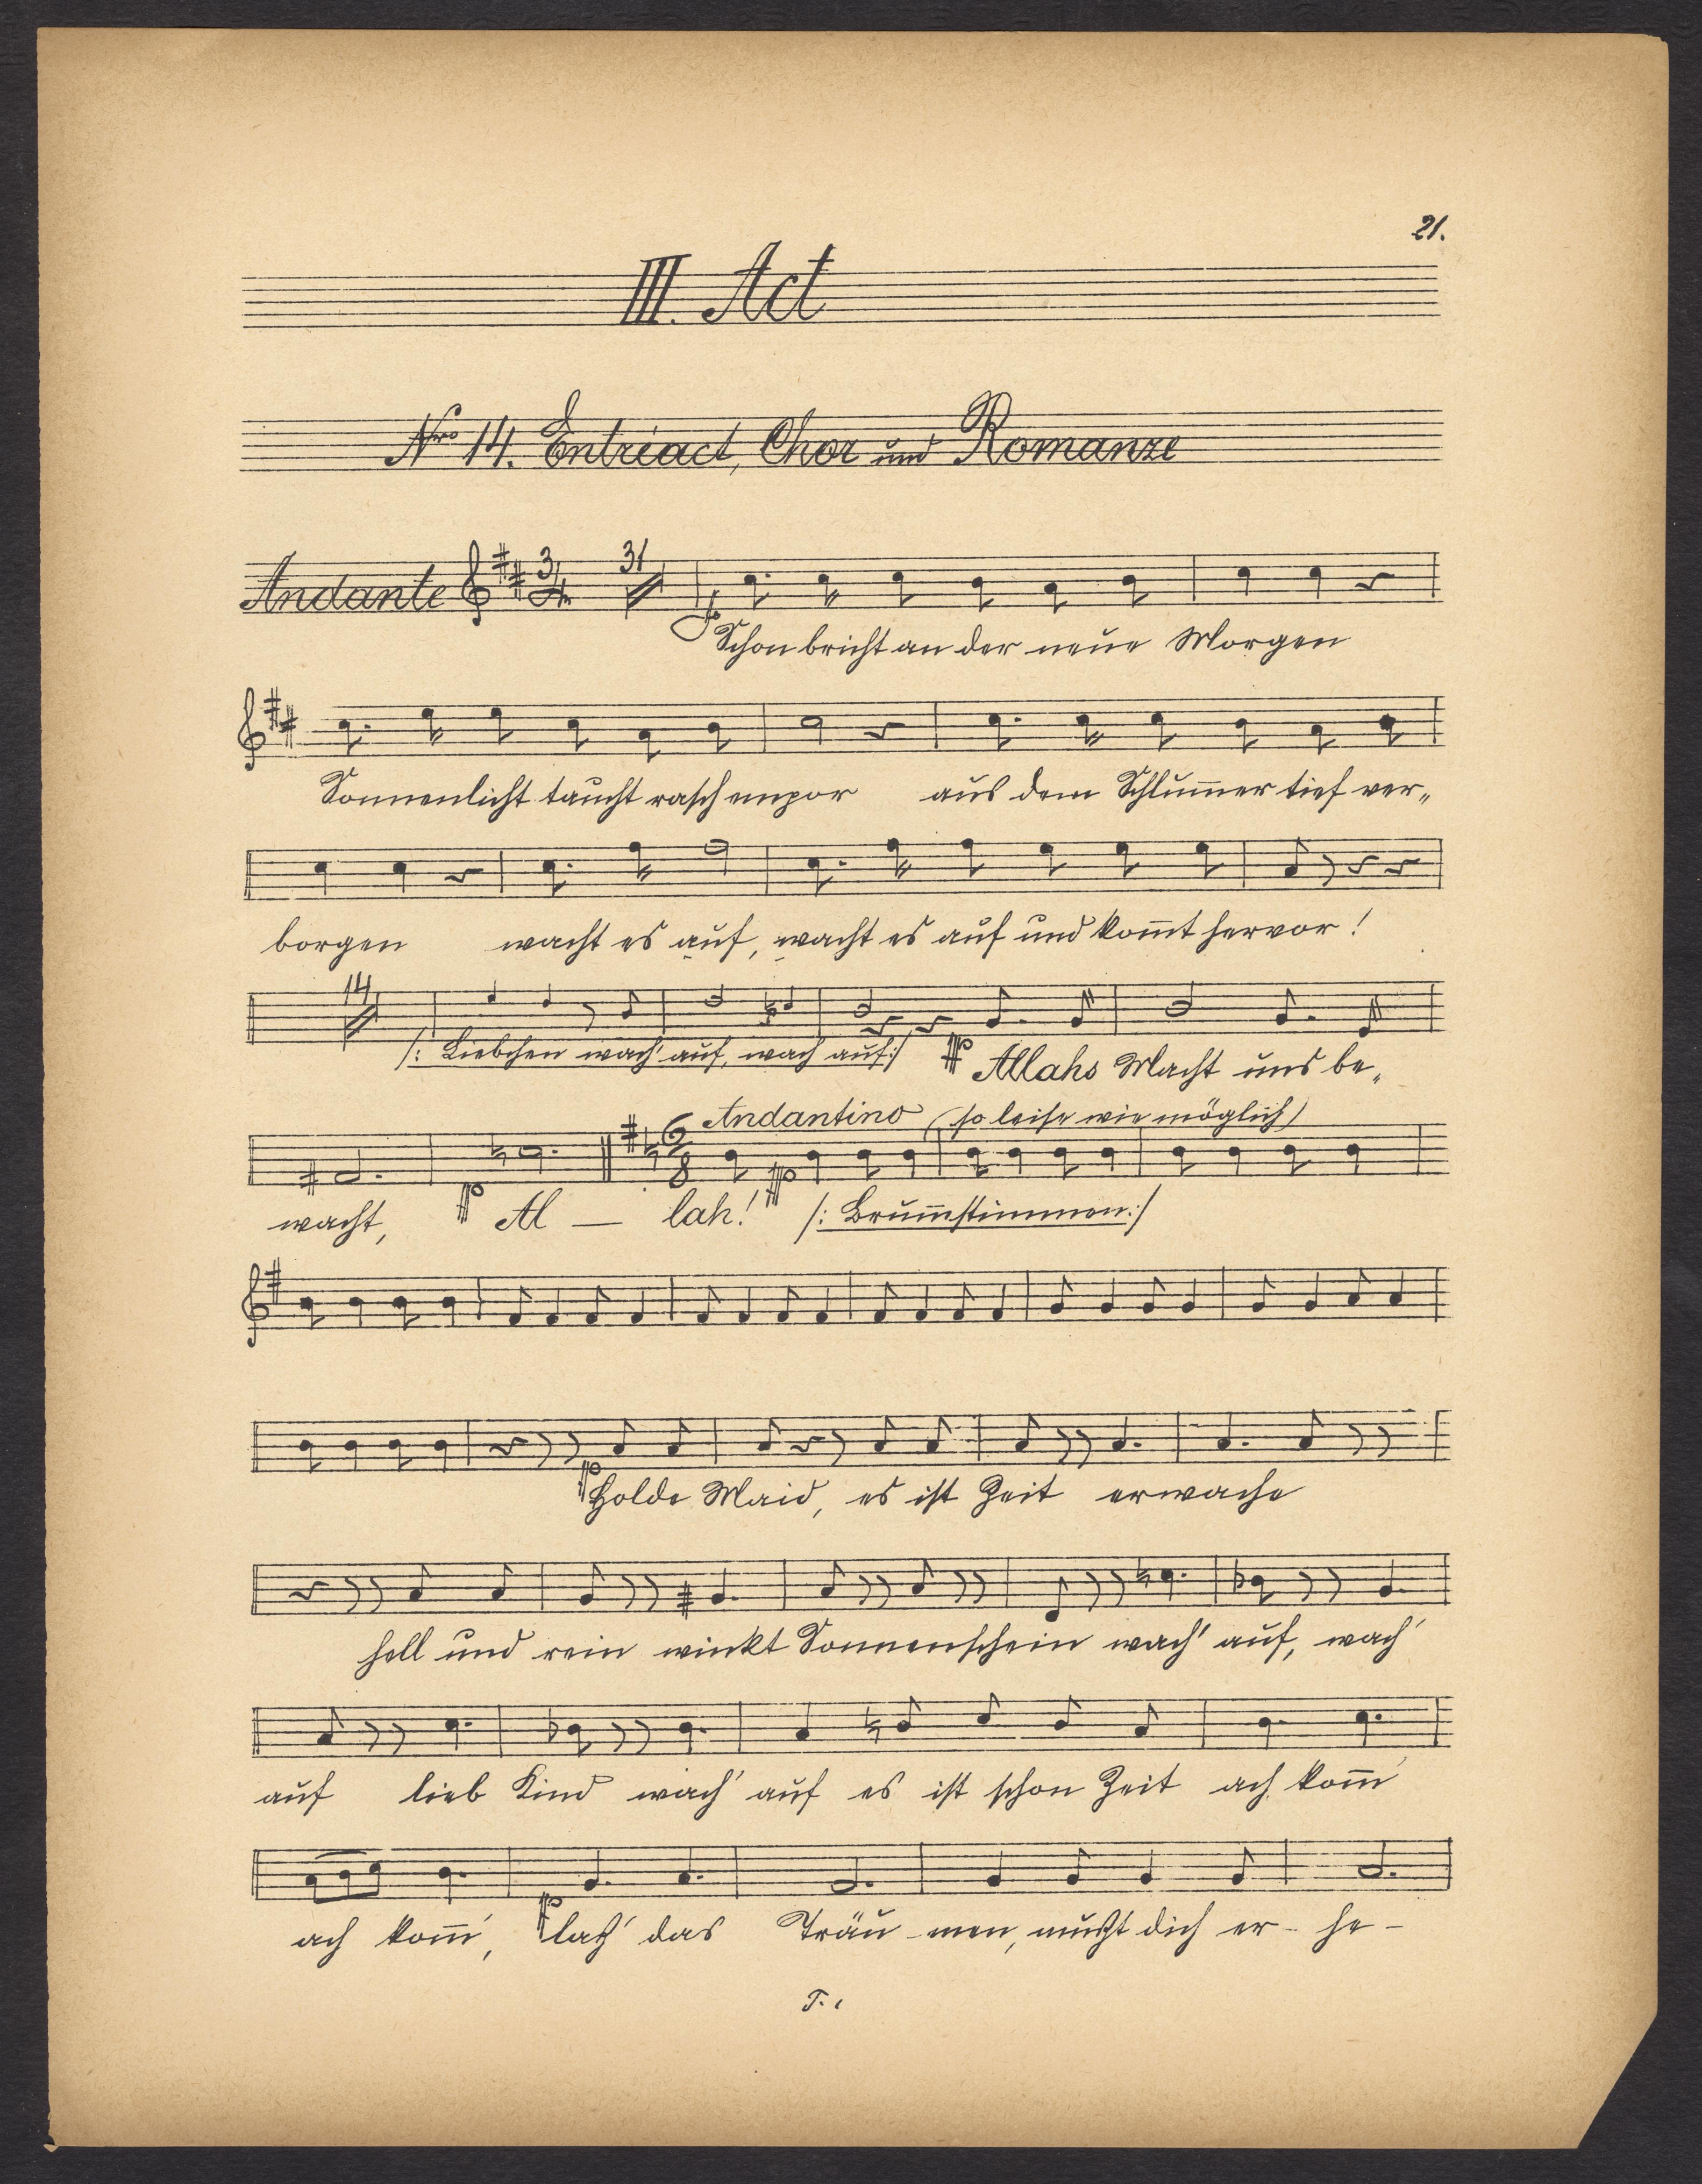 21.
III. Act
Nro 14. Entréact, Chor und Romanze
Andante 3/4 31
Schon bricht an der neue Morgen
Sonnenlicht taucht rasch empor aus dem Schlum̅er tief ver„
borgen wacht es auf, wacht es auf und kom̅t hervor!
14
/: Liebchen wach' auf, wach' auf :/ pp Allahs Macht uns be„
Andantino (so leise wie möglich)
6/8 pp
wacht, pp Al — lah! /: Brum̅stimmen :/
pp Holde Maid, es ist Zeit erwache
hell und rein winkt Sonnenschein wach' auf, wach'
auf lieb Kind wach' auf es ist schon Zeit ach kom̅'
ach kom̅', p laß' das Träu-men, mußt dich er- he-